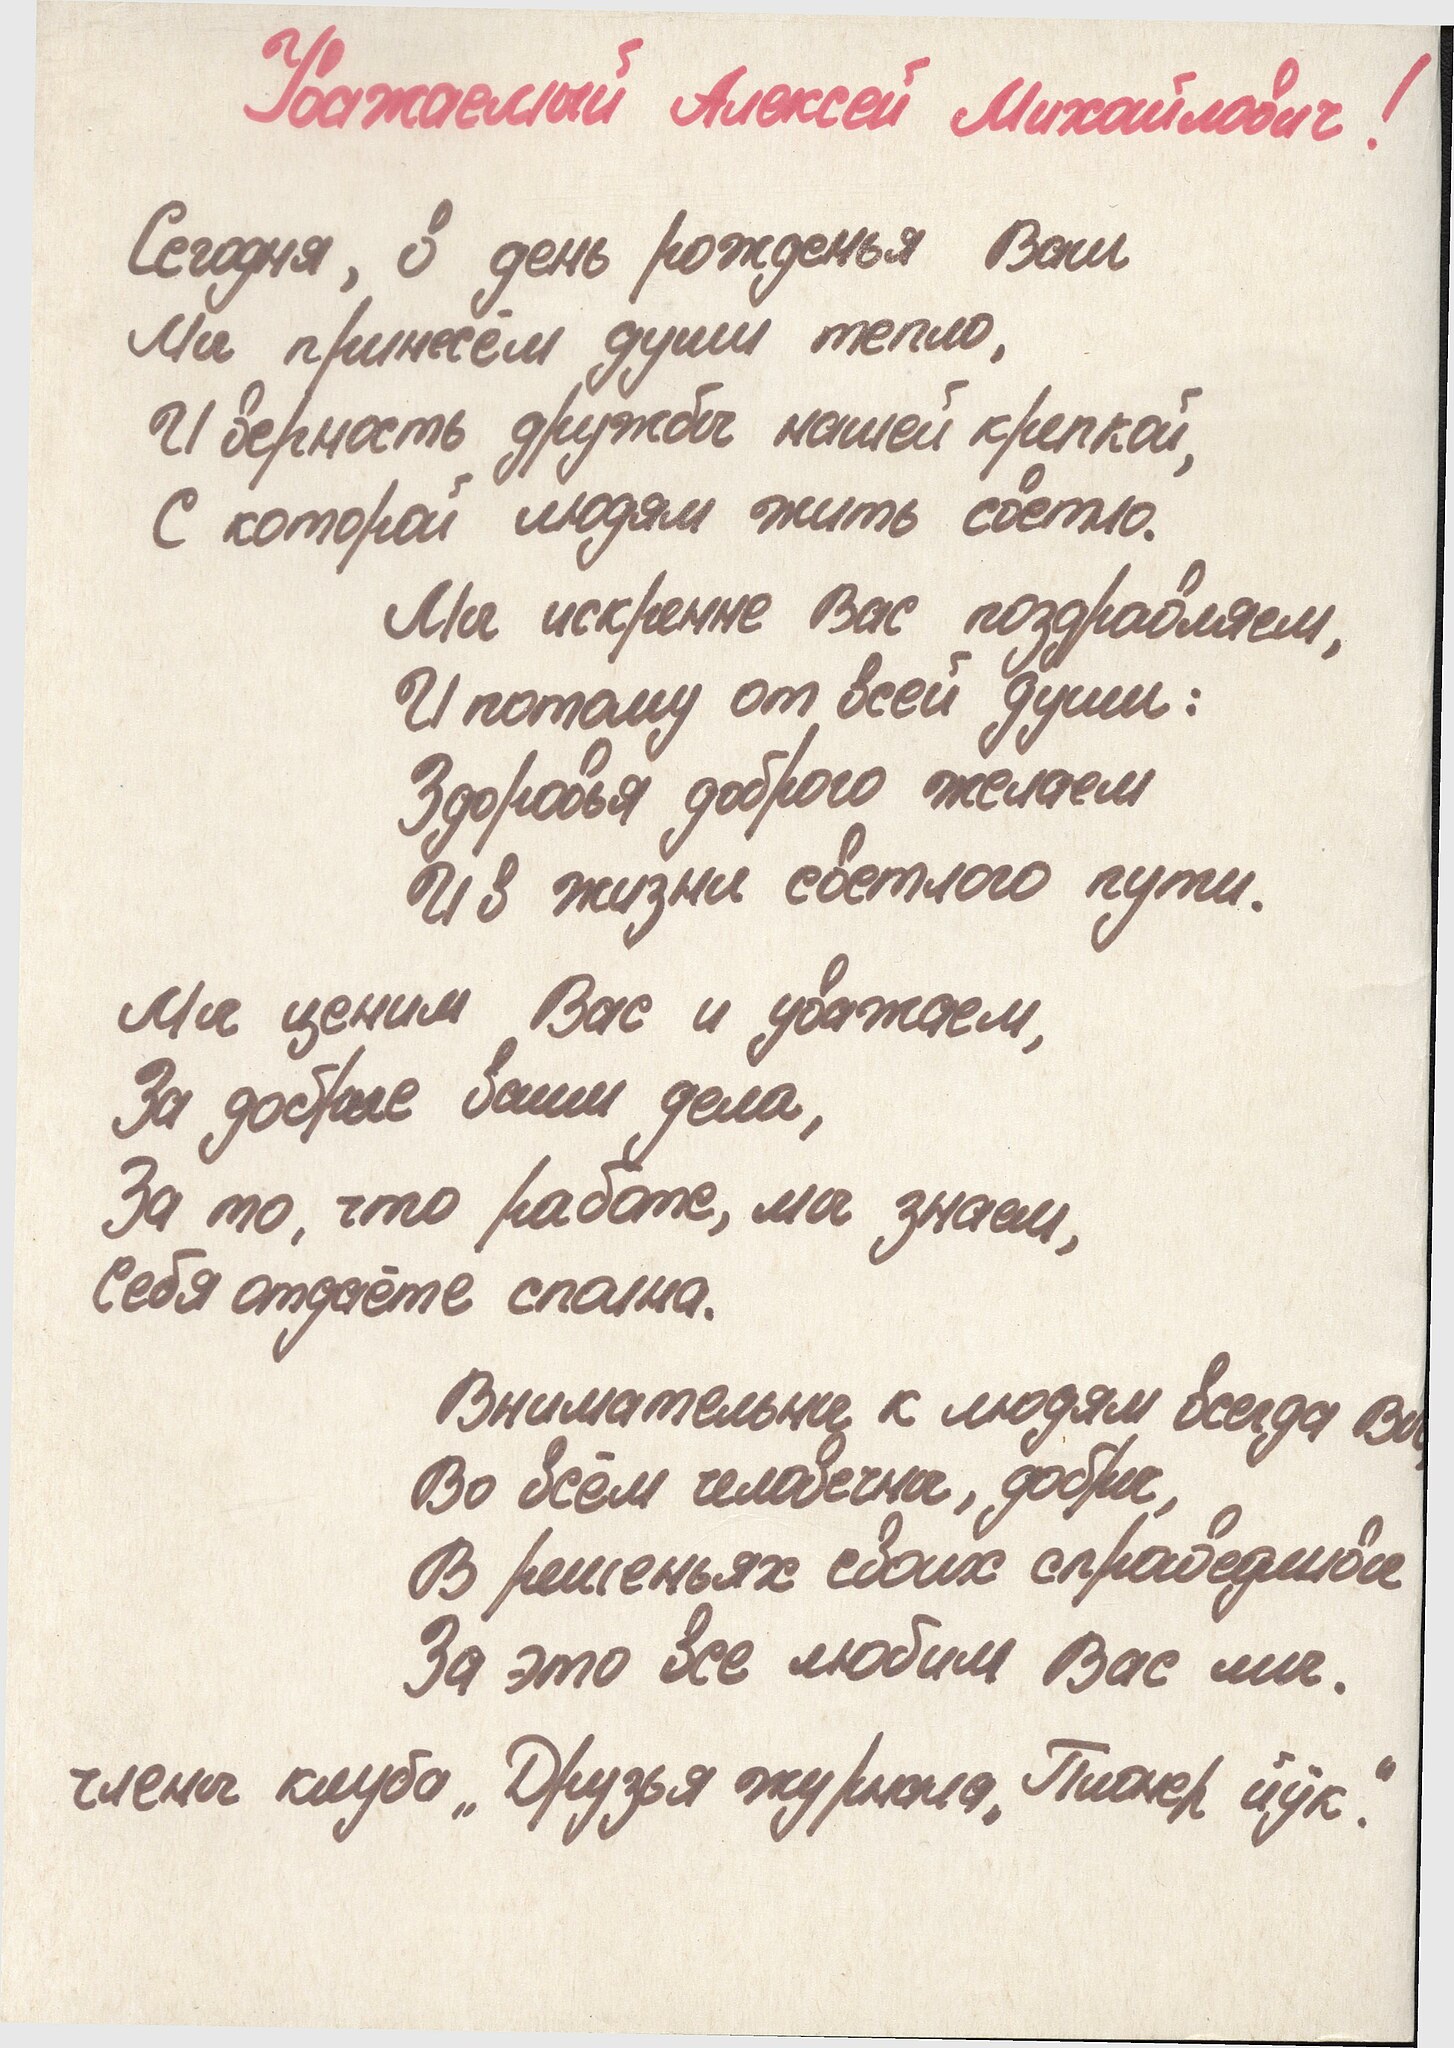 Уважаемый Алексей Михайлович!
Сегодня, в день рожденья Ваш
Мы принесём души тепло,
И верность дружбы нашей крепкой,
С которой людям жить светло.
Мы искренне Вас поздравляем,
И потому от всей души:
Здоровья доброго желаем
И в жизни светлого пути.
Мы ценим Вас и уважаем,
За добрые ваши дела,
За то, что работе, мы знаем,
Себя отдаёте сполна.
Внимательны к людям всегда Вы,
Во всём человечны, добры,
В решеньях своих справедливы
За это все любим Вас мы.
члены клуба „Друзья журнала „Пионер йўк“.